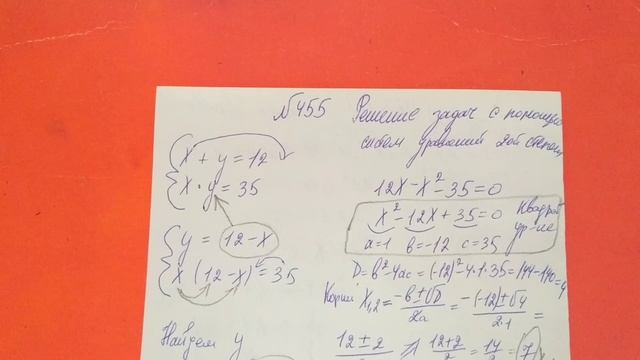 №455 Решение задач с помощью
систем уравнений 2ой степени
{ x + y = 12
x · y = 35
{ y = 12 - x
x (12 - x) = 35
Найдем y
12x - x² - 35 = 0
x² - 12x + 35 = 0 Квадрат ур-ие
a=1 b=-12 c=35
D = b² - 4ac = (-12)² - 4·1·35 = 144 - 140 = 4
Корни x1,2 = (-b ± √D)/2a = (-(-12) ± √4)/2·1 =
12 ± 2 12+2/2 = 14/2 = 7